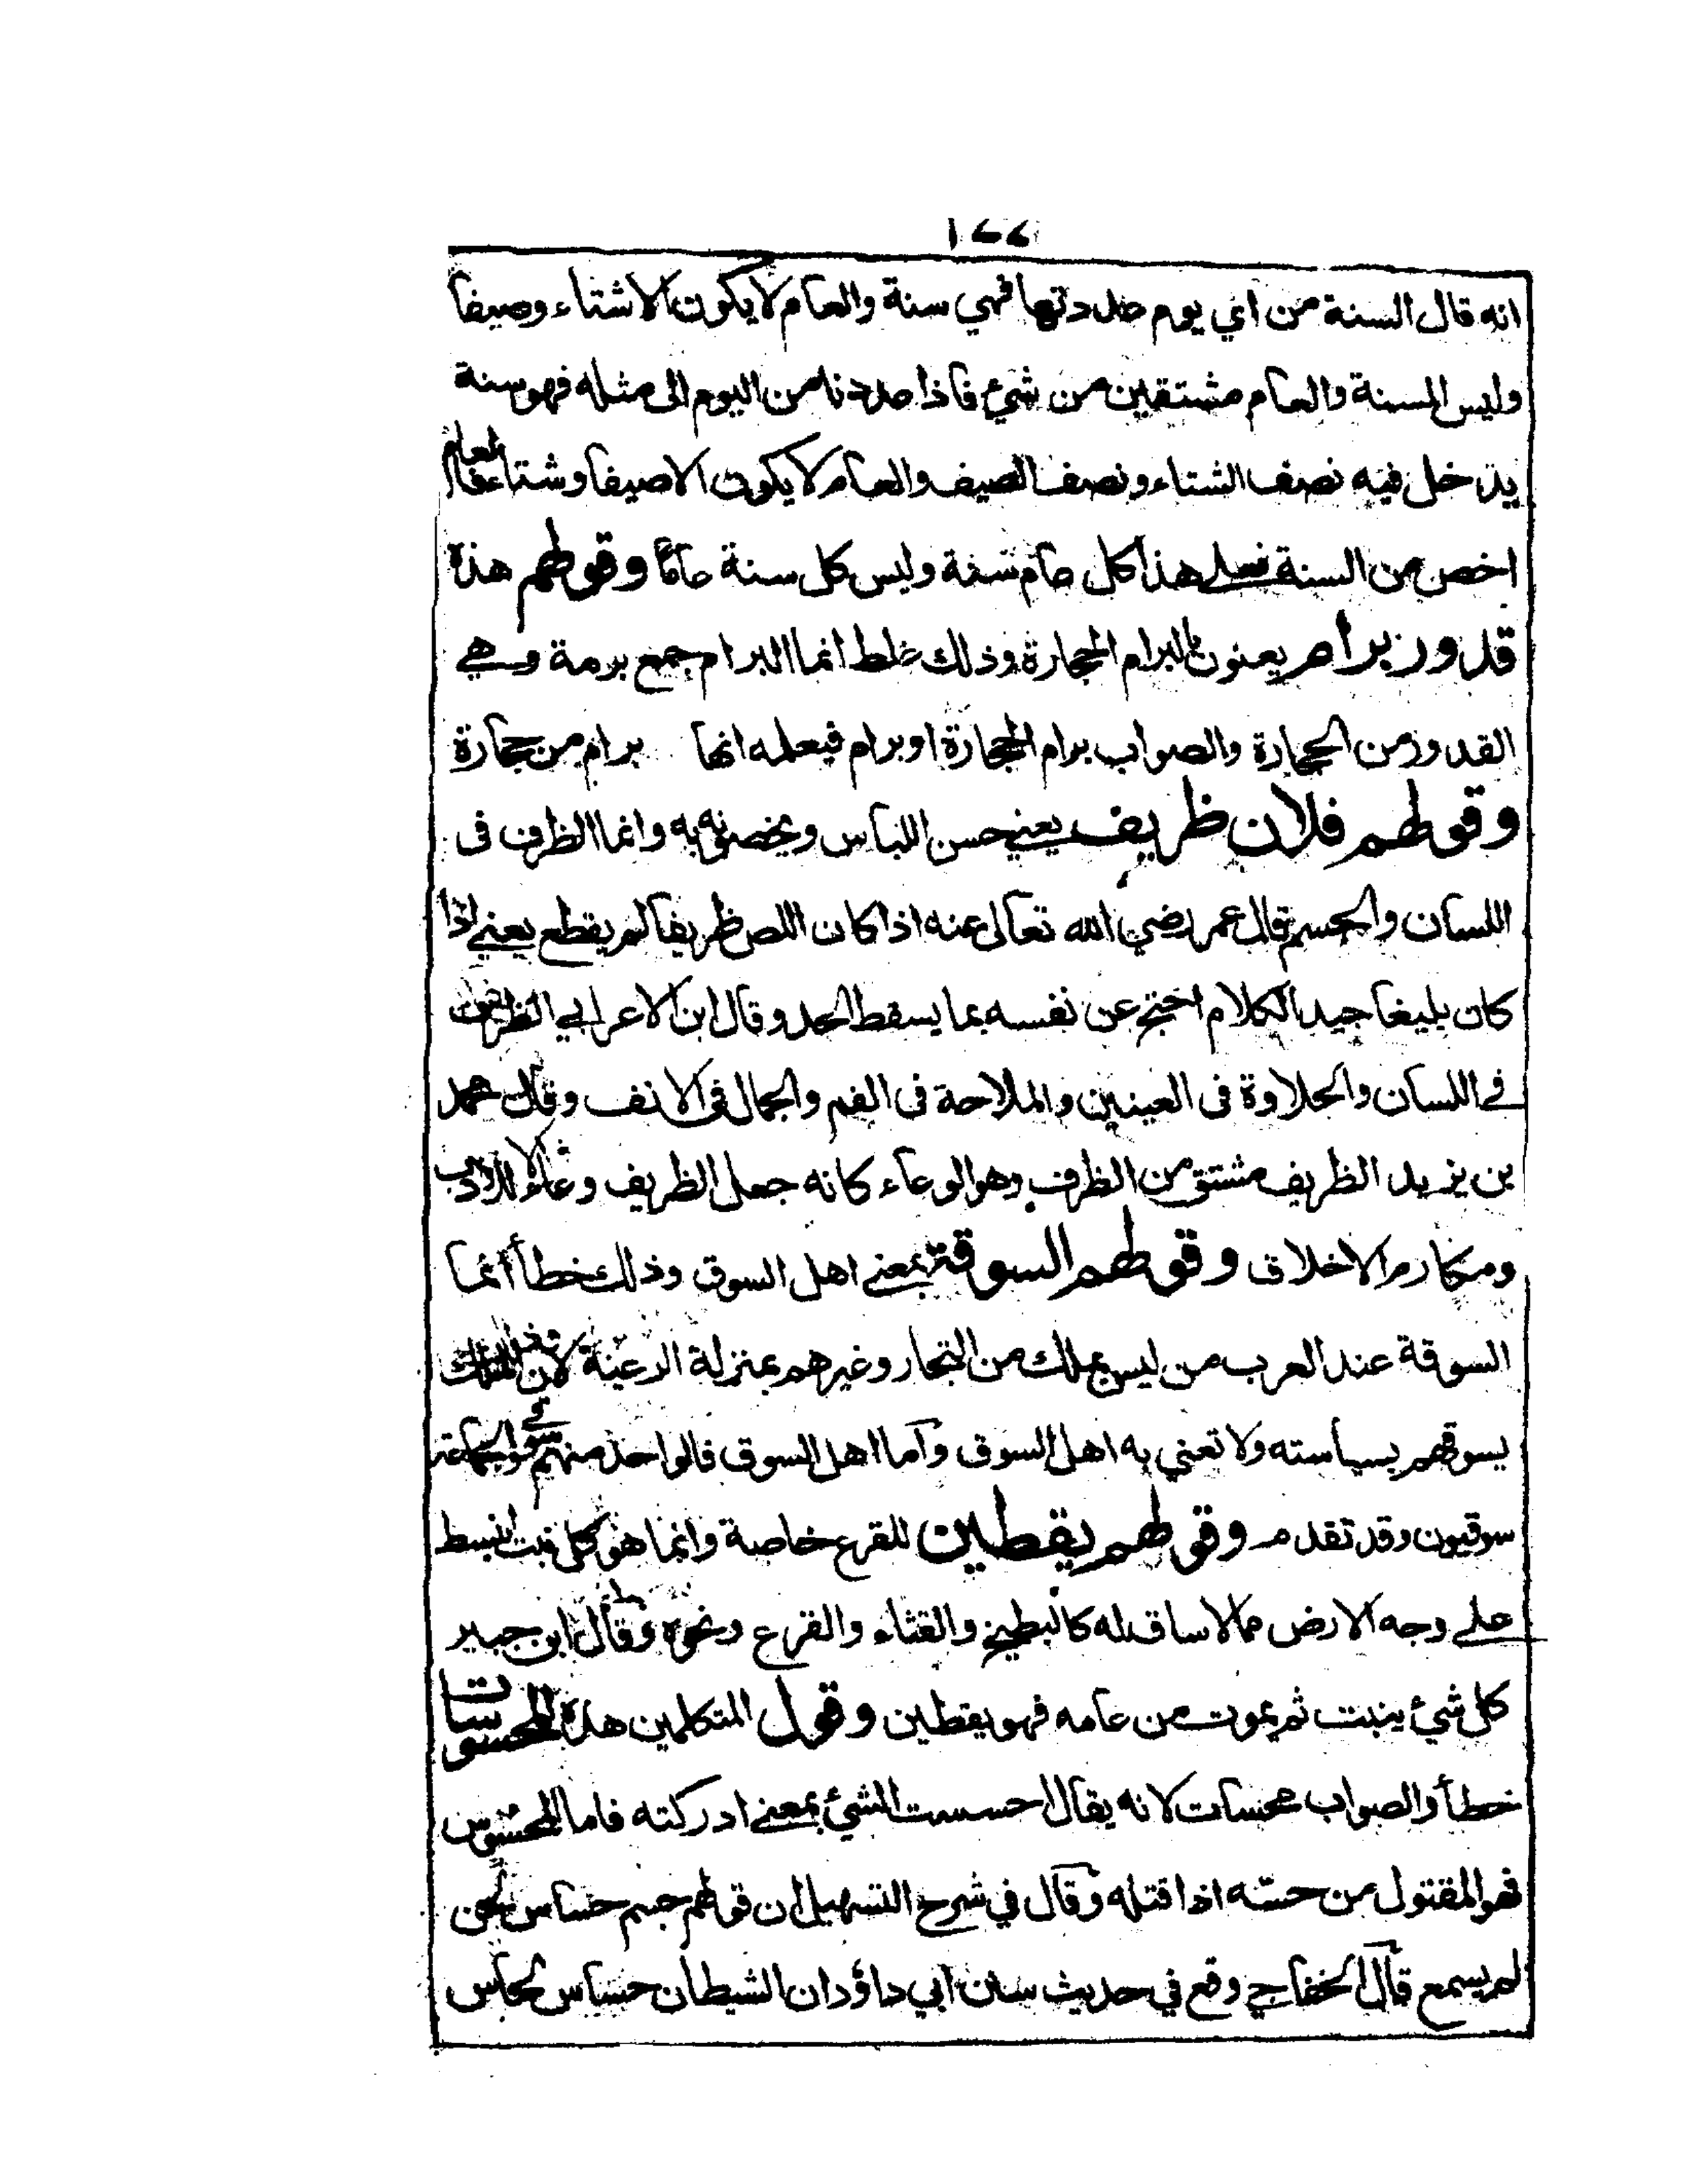 ١٧٧
انه قال السنة من اي يوم عددتها فهي سنة والعام لا يكون الا شتاء وصيفا
وليس السنة والعام مشتقين من شيء فاذا عددنا من اليوم الى مثله فهو سنة
يدخل فيه نصف الشتاء ونصف الصيف والعام لا يكون الا صيفا وشتاء فالعام
اخص من السنة فعلى هذا كل عام سنة وليس كل سنة عامًا وقولهم هذه
قدور برام يعنون بالبرام الحجارة وذلك غلط انما البرام جمع برمة وهي
القدور من الحجارة والصواب برام الحجارة او برام فيعلم انها برام من حجارة
وقولهم فلان ظريف يعني حسن اللباس ويخصونه به وانما الظرف في
اللسان والجسم قال عمر رضي الله تعالى عنه اذا كان اللص ظريفا لم يقطع يعني اذا
كان بليغا جيد الكلام احتج عن نفسه بما يسقط الحد وقال ابن الاعرابي الظرف
في اللسان والحلاوة في العينين والملاحة في الفم والجمال في الانف وقال محمد
بن يزيد الظريف مشتق من الظرف وهو الوعاء كانه جعل الظريف وعاء للادب
ومكارم الاخلاق وقولهم السوقة بمعنى اهل السوق وذلك خطأ انما
السوقة عند العرب من ليس بملك من التجار وغيرهم بمنزلة الرعية لان الملك
يسوقهم بسياسته ولا تعني به اهل السوق وأما اهل السوق فالواحد منهم سوقي والجماعة
سوقيون وقد تقدم وقولهم يقطين للقرع خاصة وانما هو كل نبت انبسط
على وجه الارض مما لا ساق له كالبطيخ والقثاء والقرع ونحوه وقال ابن جبير
كل شيء ينبت ثم يموت من عامه فهو يقطين وقول المتكلمين هذه المحسوسات
خطأ والصواب محسات لانه يقال احسست الشيء بمعنى ادركته فاما المحسوس
فهو المقتول من حسّه اذا قتله وقال في شرح التسهيل ان قولهم جسم حساس لحن
لم يسمع قال الخفاجي وقع في حديث سنن ابي داؤد ان الشيطان حساس لحاس